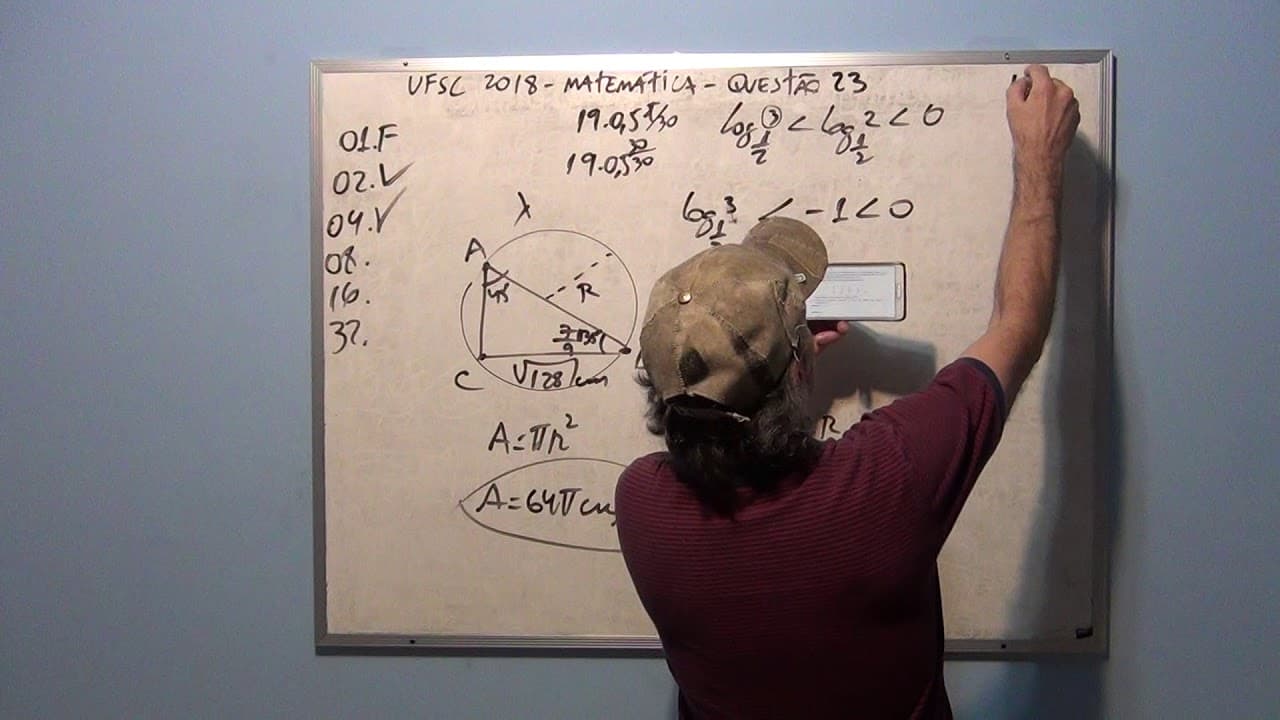 UFSC 2018 - MATEMÁTICA - QUESTÃO 23
01.F
02.V
04.V
08.
16.
32.
19.0,5^t/30
19.0,5^30/30
log 1/2 3 < log 1/2 2 < 0
log 1/2 3 < -1 < 0
λ
A
45
R
C
√128 cm
A=πr²
A=64πcm
R